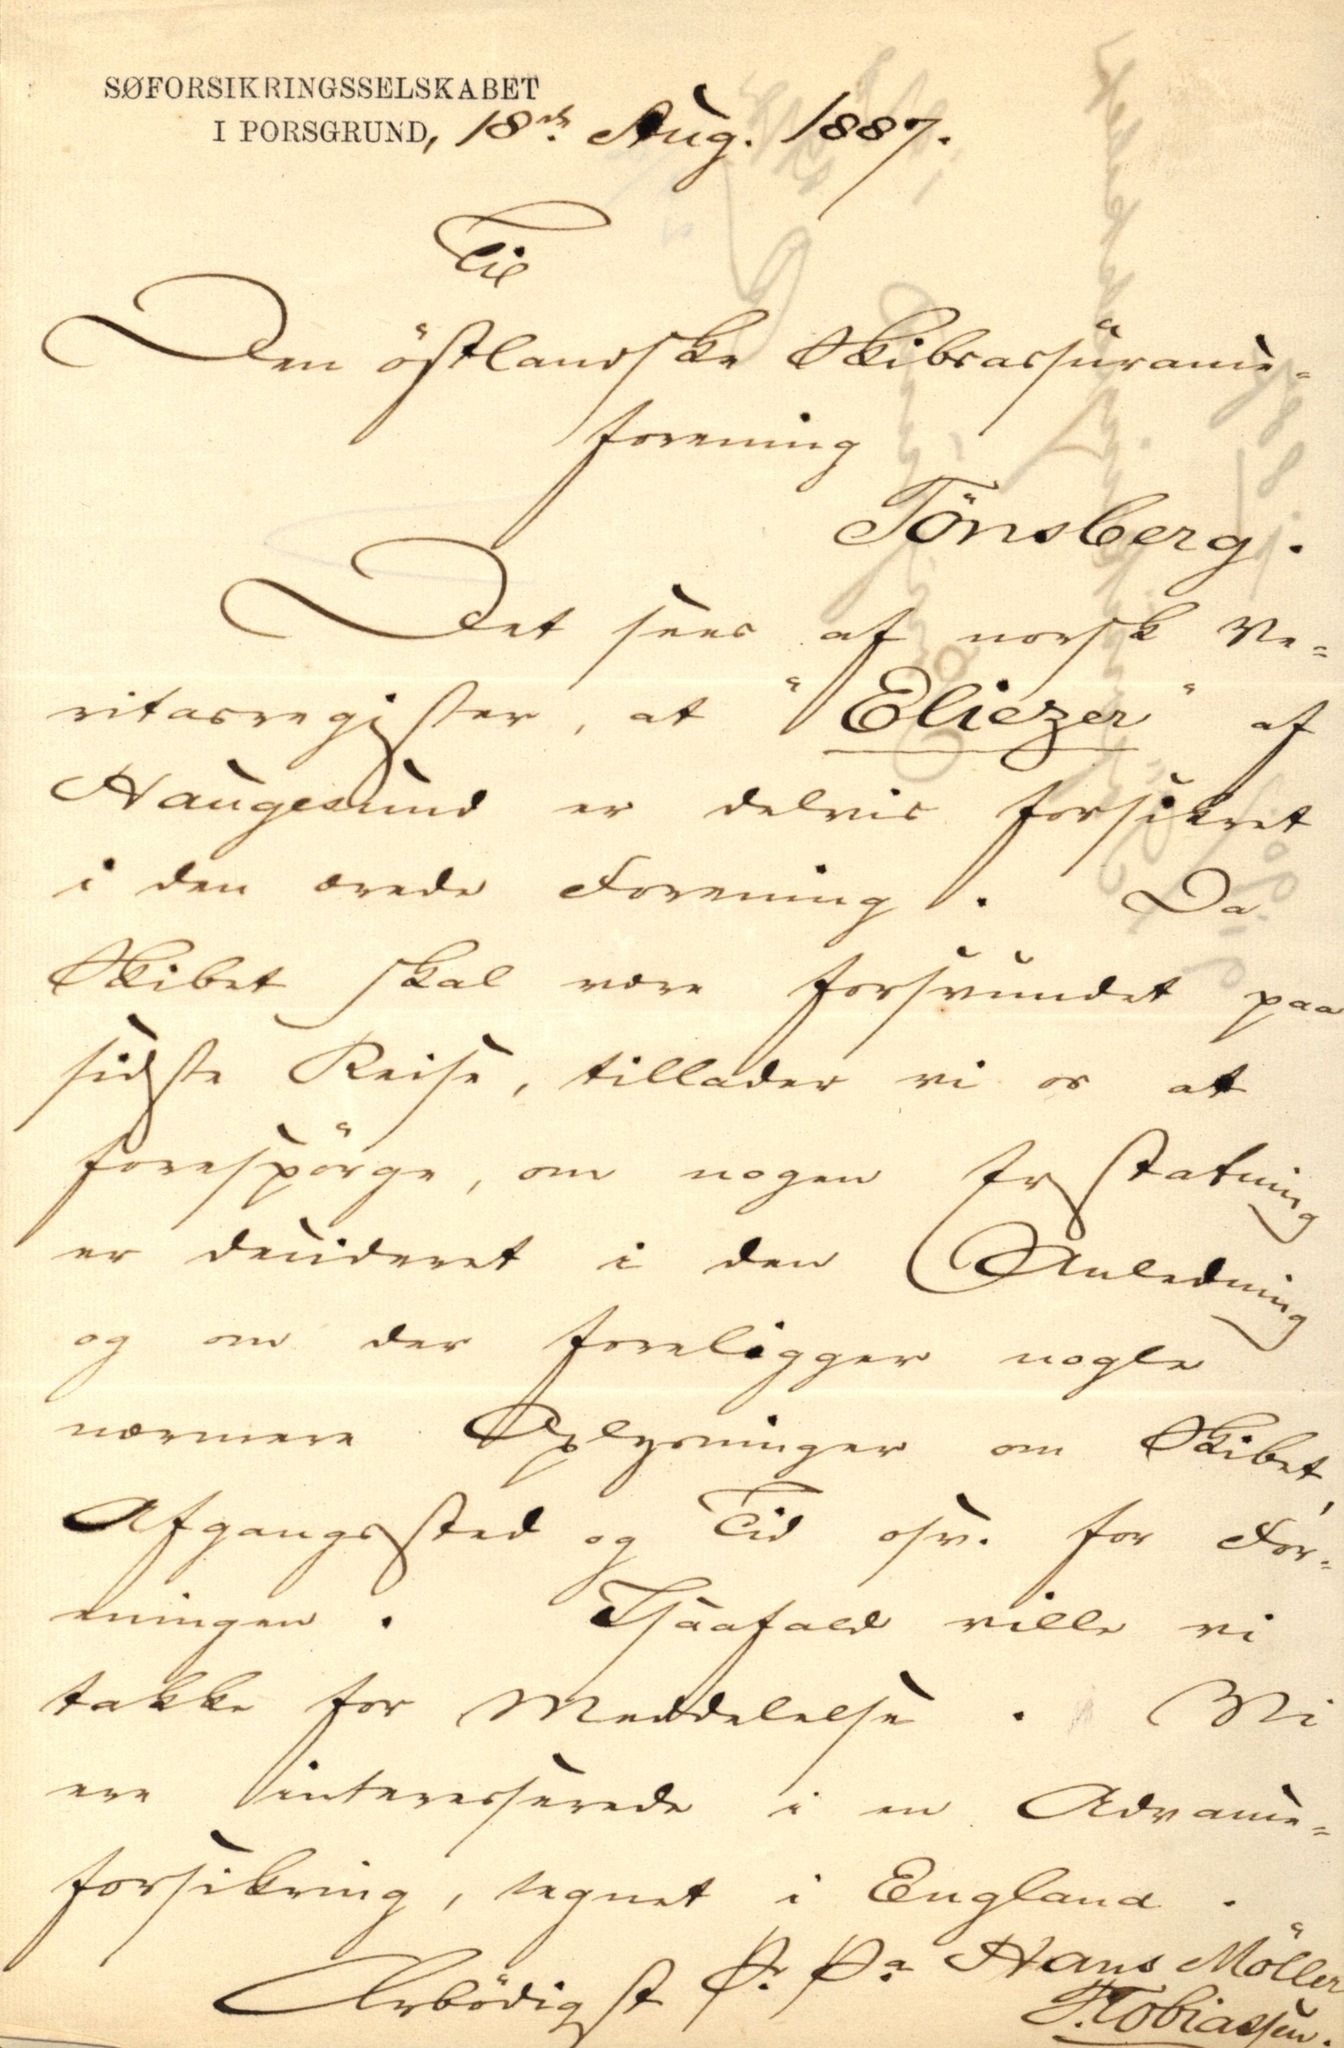 SØFORSIKRINGSSELSKABET
I PORSGRUND, 18de Aug. 1887.
Til
Den östlandske Skibsassurance-
forening
Tönsberg.
Det sees af norsk Ve-
ritasregister, at "Eliezer" af
Haugesund er delvis forsikret
i den ærede Forening. Da
Skibet skal være forsvundet paa
sidste Reise, tillader vi os at
forespörge, om nogen Erstatning
er decideret i den Anledning
og om der foreligger nogle
nærmere Oplysninger om Skibet,
Afgangssted og Tid osv. for For-
eningen. Isaafald ville vi
takke for Meddelelse. Vi
ere interesserede i en Advance-
forsikring, tegnet i England.
Ærbödigst pr. pa Hans Möller
F. Tobiassen.